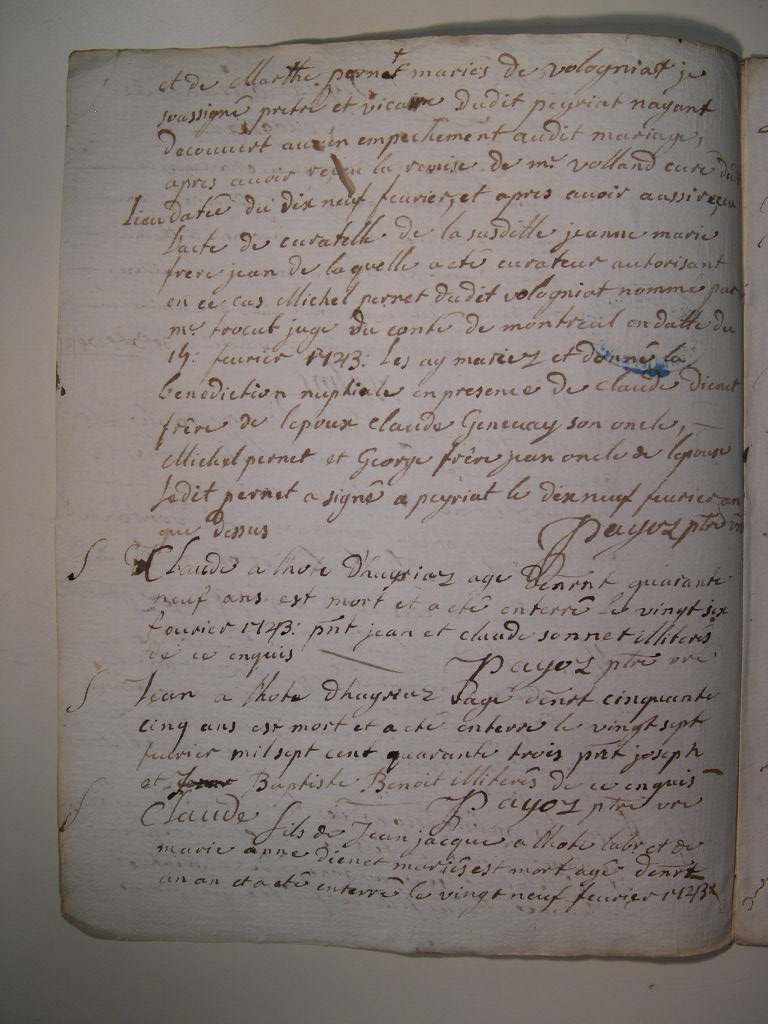 et de Marthe pernet mariés de vologniat je
soussigné pretre et vicaire dudit peyriat nayant
decouvert aucun empechement audit mariage,
apres avoir reçeu la remise de mr volland curé dudt
lieu datée du dix neuf fevrier, et apres avoir aussi reçeu
lacte de curatelle de la susditte jeanne marie
frere jean de laquelle a eté curateur autorisant
en ce cas Michel pernet dudit vologniat nommé par
mr trocut juge du comté de montreal en datte du
15: fevrier 1743: les ay mariez et donné la
benediction nuptiale en presence de Claude dienet
frère de lepoux Claude Genevay son oncle,
Michel pernet et George frère jean oncle de lepouse
Ledit pernet a signé a peyriat le dix neuf fevrier an
que dessus
Payoz ptre vre
Claude a lhote dhayriaz agé denrnt quarante
neuf ans est mort et a eté enterré le vingt six
fevrier 1743: pnt jean et claude sonnet illiterés
de ce enquis Payoz ptre vre
Jean a lhote dhayriaz agé denrt cinquante
cinq ans est mort et a eté enterré le vingt sept
fevrier mil sept cent quarante trois pnt joseph
et Baptiste Benoit illiterés de ce enquis
Payoz ptre vre
Claude fils de Jean jacque a lhote labr et de
marie anne dienet mariés est mort agé denrt
un an et a eté enterré le vingt neuf fevrier 1743